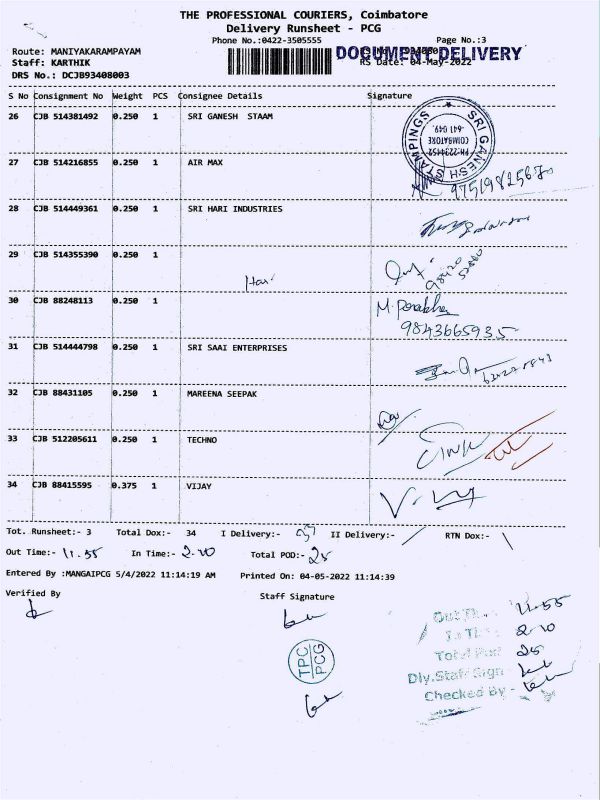 THE PROFESSIONAL COURIERS, Coimbatore
Delivery Runsheet - PCG
Phone No.:0422-3505555 Page No.:3
Route: MANIYAKARAMPAYAM DOCUMENT DELIVERY
Staff: KARTHIK RS Date: 04-May-2022
DRS No.: DCJB93408003
S No Consignment No Weight PCS Consignee Details Signature
26 CJB 514381492 0.250 1 SRI GANESH STAAM
SRI GANESH STAMPINGS
COIMBATORE
-641 049.
27 CJB 514216855 0.250 1 AIR MAX
28 CJB 514449361 0.250 1 SRI HARI INDUSTRIES
29 CJB 514355390 0.250 1
Hari
30 CJB 88248113 0.250 1
9843665935
31 CJB 514444798 0.250 1 SRI SAAI ENTERPRISES
32 CJB 88431105 0.250 1 MAREENA SEEPAK
33 CJB 512205611 0.250 1 TECHNO
34 CJB 88415595 0.375 1 VIJAY
Tot. Runsheet:- 3 Total Dox:- 34 I Delivery:- II Delivery:- / RTN Dox:- \
Out Time:- 11.55 In Time:- 2.10 Total POD:- 25
Entered By :MANGAIPCG 5/4/2022 11:14:19 AM Printed On: 04-05-2022 11:14:39
Verified By Staff Signature
TPC
PCG
11.55
2-10
Total Pod 25
Dly.Staff Sign
Checked By -